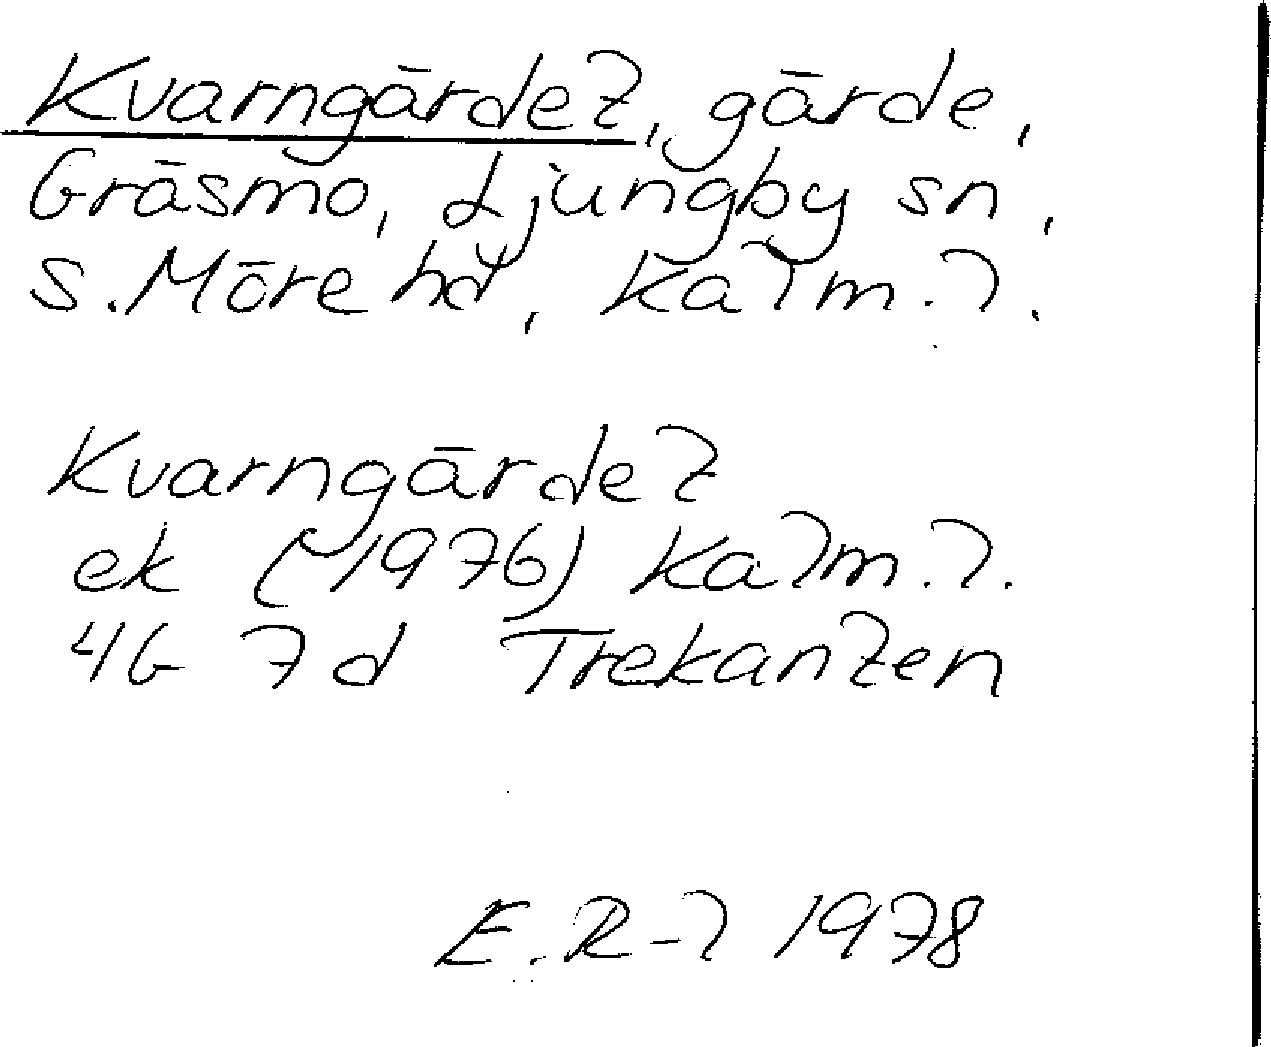 Kvarngärdet, gärde,
Gräsmo, Ljungby sn,
S. Möre hd, Kalm. l.
Kvarngärdet
ek (1976) Kalm. l.
4G 7d Trekanten
E. R-l 1978